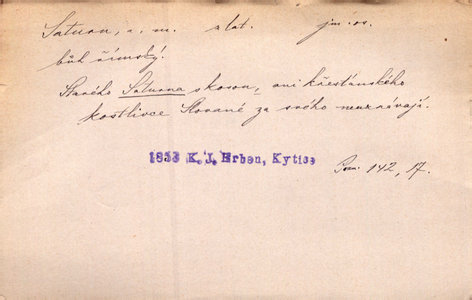 Saturn, a, m. z lat. jm. os.
bůh římský.
Starého Saturna skosou, ani křesťanského
kostlivce Slované za svého neuznávají.
1853 K. J. Erben, Kytice
Pozn. 142, 17.